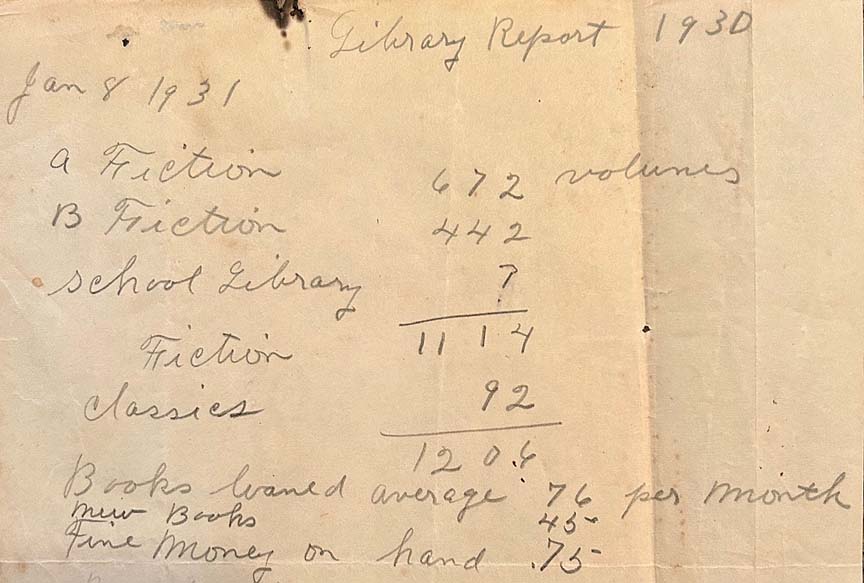 Library Report 1930
Jan 8 1931
A Fiction 672 volumes
B Fiction 442
School Library ?
Fiction 1114
Classics 92
1206
Books loaned average 76 per month
new Books 45
Fine Money on hand .75